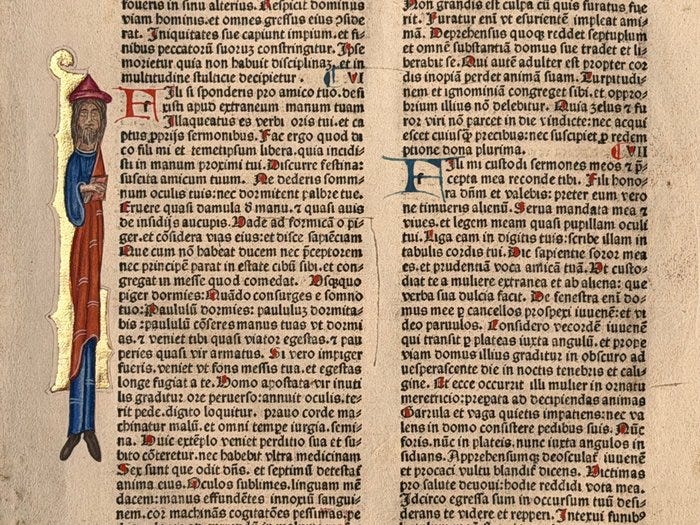 foueris in sinu alterius. Respicit dominus
viam hominis. et omnes gressus eius ɔside
rat. Iniquitates sue capiunt impium. et fu
nibus peccatorũ suoruꝫ constringitur. Ipse
morietur quia non habuit disciplinaꝫ. et in
multitudine stulticie decipietur . VI
Fili si sponderis pro amico tuo. defi
xisti apud extraneum manum tuam
Illaqueatus es verbi oris tui. et ca
ptus ꝓprijs sermonibus. Fac ergo quod di
co fili mi et temetipsum libera. quia incidi
sti in manum proximi tui. Discurre festina:
suscita amicum tuum. Ne dederis somm-
num oculis tuis: nec dormitent palbre tue.
Eruere quasi damula d̕ manu. ⁊ quasi auis
de insidijs aucupis. Uade ad formicã o pi-
ger. et cõsidera vias eius: et disce sapiẽciam
Que cum nõ habeat ducem nec p̄ceptorem
nec principem parat in estate cibũ sibi. et con-
gregat in messe quod comedat. Usqꝫquo
piger dormies: Quãdo consurges e somno
tuo: Paululũ dormies: paululuꝫ dormita-
bis: paululũ cõseres manus tuas vt dormi
as. ⁊ veniet tibi quasi viator egestas. ⁊ pau
peries quasi vir armatus. Si vero impiger
fueris. veniet vt fons messis tua. et egestas
longe fugiat a te. Domo apostata vir inuti
lis graditur ore peruerso: annuit oculis. te-
rit pede. digito loquitur. prauo corde ma-
chinatur malũ. et omni tempe iurgia. semi-
na. Huic extẽplo veniet perditio sua et su-
bito cõteretur. nec habebit vltra medicinam
Sex sunt que odit dñs. et septimũ detestat̃
anima eius. Oculos sublimes. linguam mẽ
dacem: manus effundẽtes innoxiũ sangui-
nem. cor machinãs cogitatões pessimas. pe
Non grandis est culpa cũ quis furatus fue
rit. Furatur enĩ vt esurientẽ impleat ani-
mã. Deprehensus quoqꝫ reddet septuplum
et omnẽ substantiã domus sue tradet et li-
berabit se. Qui autẽ adulter est propter cor
dis inopiã perdet animã suam. Turpitudi-
nem et ignominiã congreget sibi. et. oppro-
brium illius nõ delebitur. Quia ʒelus ⁊ fu
ror viri nõ parcet in die vindicte: nec acqui
escet cuiusqꝫ precibus: nec suscipiet ꝓ redem
ptione dona plurima. VII
Fili mi custodi sermones meos ⁊ p̄-
cepta mea reconde tibi. Fili hono-
ra dñm et valebis: preter eum vero
ne timueris alienũ. Serua mandata mea ⁊
viues. et legem meam quasi pupillam oculi
tui. Liga eam in digitis tuis: scribe illam in
tabulis cordis tui. Dic sapientie soror mea
es. et prudentiã voca amicã tuã. Ut custo-
diat te a muliere extranea et ab aliena: que
verba sua dulcia facit. De fenestra enĩ do-
mus mee ꝑ cancellos prospexi iuuenẽ: et vi
deo paruulos. Considero vecordẽ iuuenẽ
qui transit ꝑ plateas iuxta angulũ. et prope
viam domus illius graditur in obscuro ad
uesperascente die in noctis tenebris et cali-
gine. Et ecce occurrit illi mulier in ornatu
meretricio: preꝑata ad decipiendas animas
Garrula et vaga quietis impatiens: nec va
lens in domo consistere pedibus suis. Nũc
foris. nũc in plateis. nunc iuxta angulos in
sidians. Apprehensumqꝫ deosculat̃ iuuenẽ
et procaci vultu blandit̃ dicens. Uictimas
pro salute deuoui: hodie reddidi vota mea.
Idcirco egressa sum in occursum tuũ desi-
derans te videre et repperi. Intexui funibꝰ